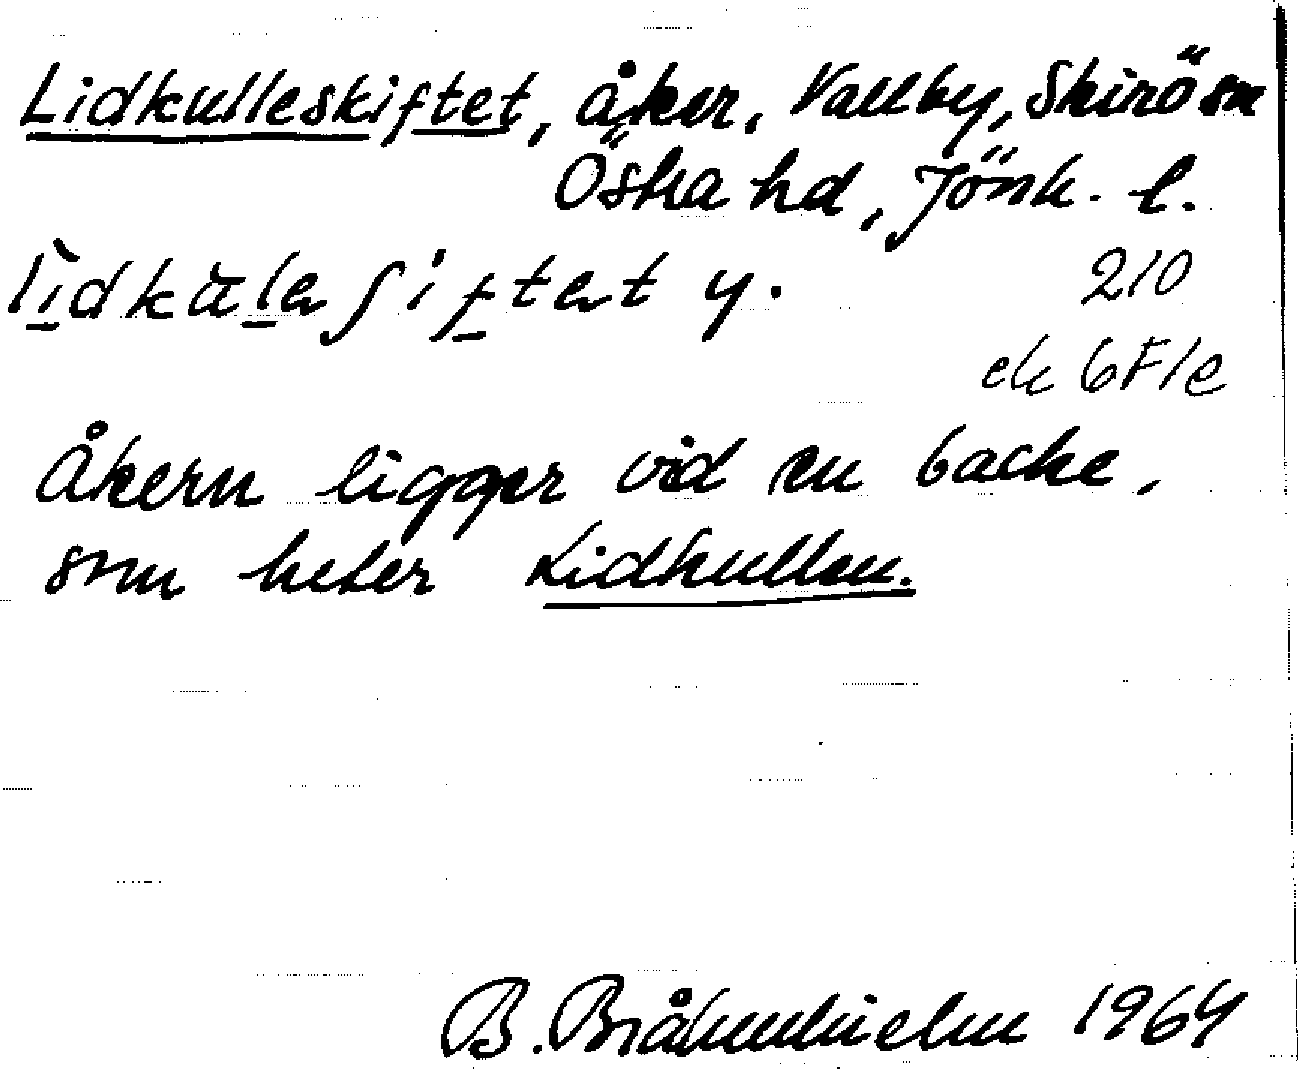 Lidkulleskiftet, åker, Vallby, Skirö sn
Östra hd, Jönk. l.
y.
210
ek 6F1e
Åkern ligger vid en backe,
som heter Lidkullen.
B. Bråkenhielm 1964